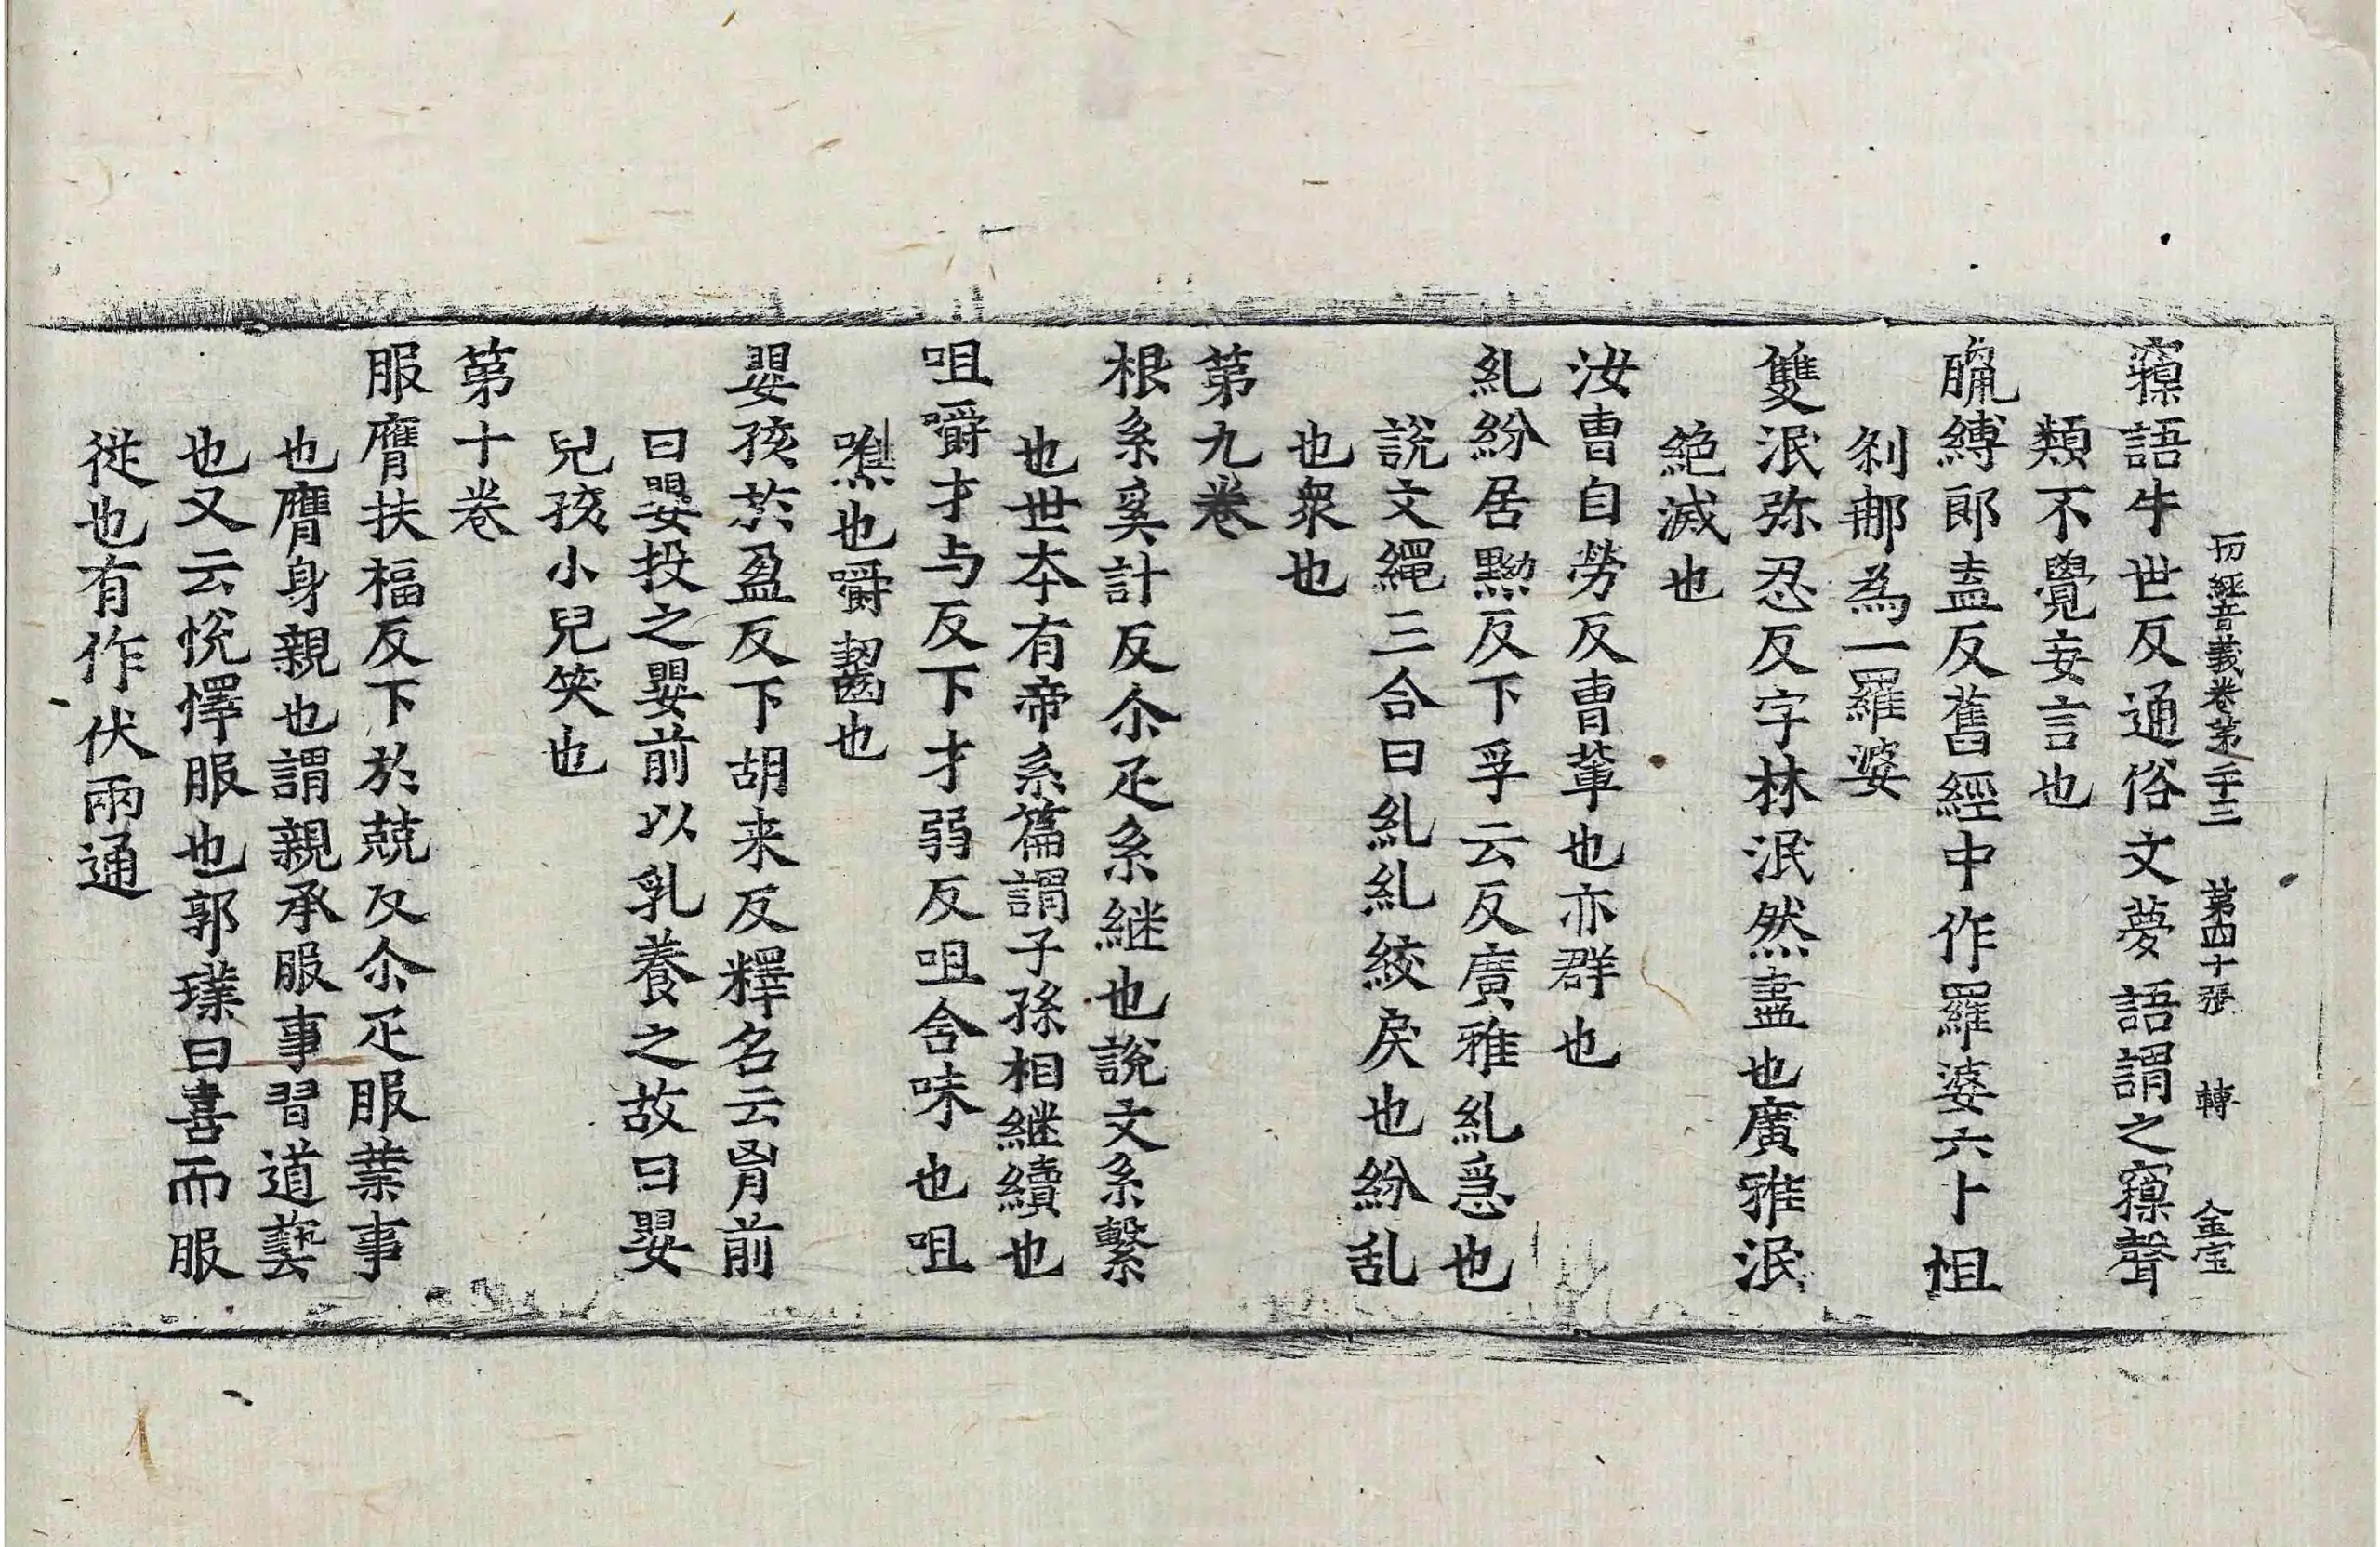 一切經音義卷第二十三 第四十張 轉 金宝
寱語牛世反通俗文夢語謂之寱聲
類不覺妄言也
臈縛郎盍反舊經中作羅婆六十怛
刹那為一羅婆
雙泯弥忍反字林泯然盡也廣雅泯
絶滅也
汝曹自勞反曹輩也亦群也
糺紛居黝反下孚云反廣雅糺急也
說文繩三合曰糺糺絞戾也紛乱
也衆也
第九卷
根系奚計反尒疋系継也說文系繫
也世夲有帝系篇謂子孫相継續也
咀嚼才与反下才弱反咀含味也咀
噍也嚼齧也
嬰孩於盈反下胡来反釋名云胷前
曰嬰投之嬰前以乳養之故曰嬰
兒孩小兒笑也
第十卷
服膺扶福反下於兢反尒疋服業事
也膺身親也謂親承服事習道藝
也又云悅懌服也郭璞曰喜而服
從也有作伏兩通